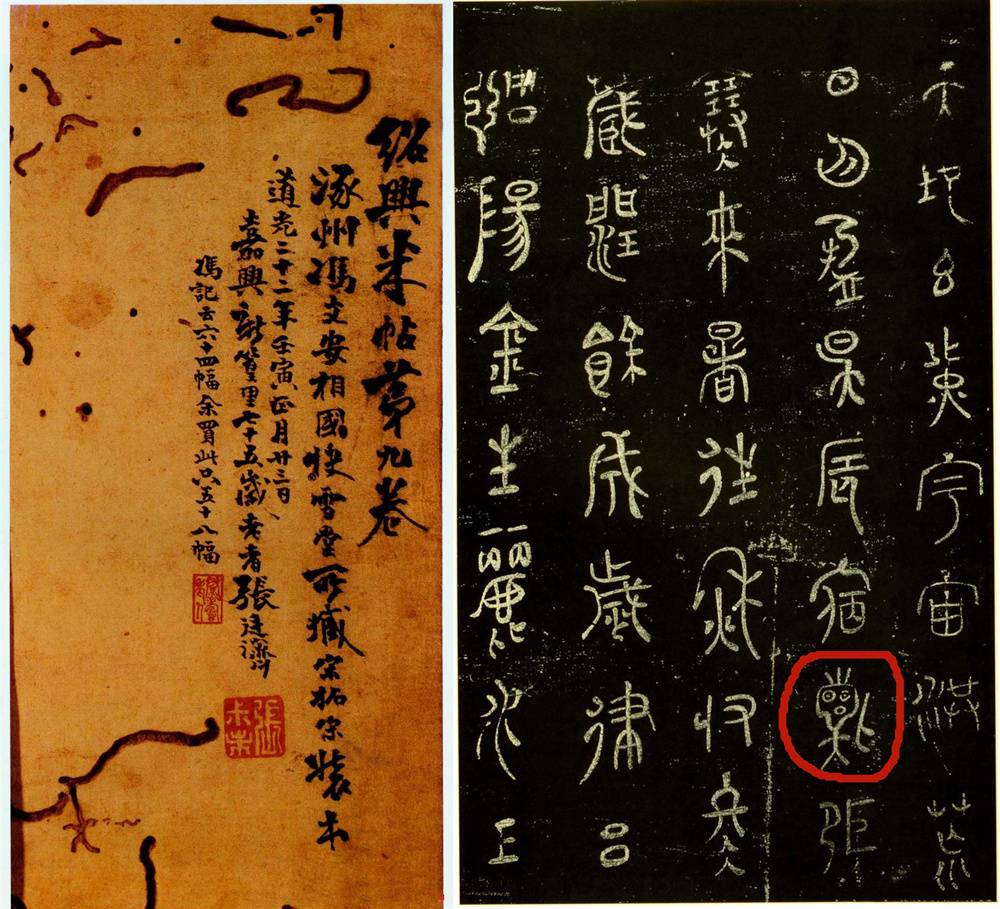 紹興米帖第九卷
涿州馮文安相國快雪堂所藏宋拓宋裝本
道光二十二年壬寅正月廿三日
嘉興新篁里七十五歲老者張廷濟
馮記云六十四幅余買此只五十八幅
天地玄黃宇宙洪荒
日月盈昃辰宿列張
寒來暑往秋收冬
藏閏餘成歲律呂
調陽金生麗水玉